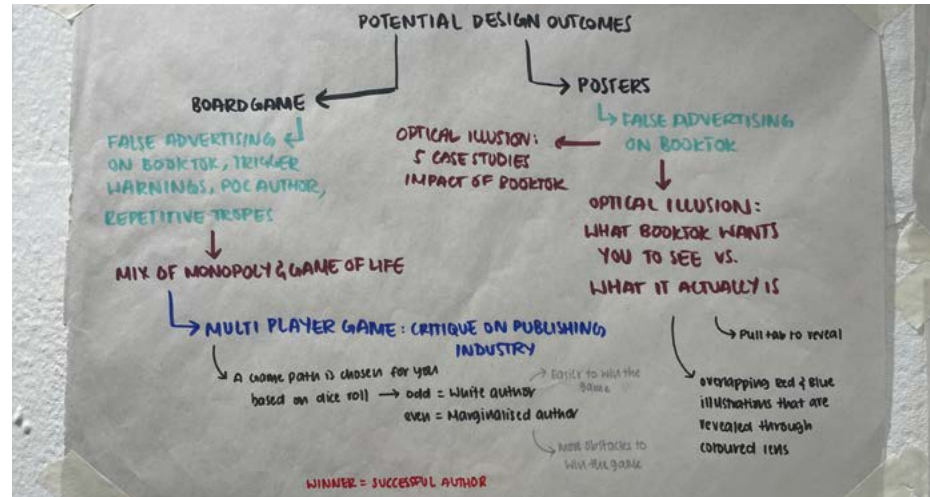 POTENTIAL DESIGN OUTCOMES
BOARDGAME
FALSE ADVERTISING
ON BOOKTOK, TRIGGER
WARNINGS, POC AUTHOR,
REPETITIVE TROPES
MIX OF MONOPOLY & GAME OF LIFE
MULTI PLAYER GAME: CRITIQUE ON PUBLISHING
INDUSTRY
A Game path is chosen for you
based on dice roll → odd = White author
even = Marginalised author
Easier to win the
game
More obstacles to
win the game
WINNER = SUCCESSFUL AUTHOR
POSTERS
FALSE ADVERTISING
ON BOOKTOK
OPTICAL ILLUSION:
5 CASE STUDIES
IMPACT OF BOOKTOK
OPTICAL ILLUSION:
WHAT BOOKTOK WANTS
YOU TO SEE VS.
WHAT IT ACTUALLY IS
Pull tab to reveal
overlapping Red & Blue
illustrations that are
revealed through
coloured lens